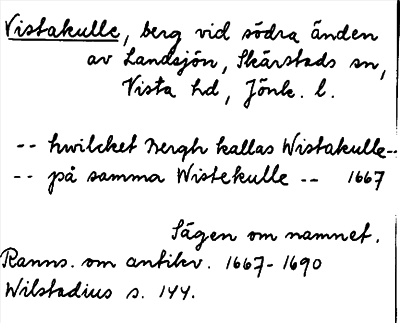 Vistakulle, berg vid södra änden
av Landsjön, Skärstads sn,
Vista hd, Jönk. l.
-- hwilcket Bergh kallas Wistakulle--
-- på samma Wistekulle -- 1667
Sägen om namnet.
Ranns. om antikv. 1667-1690
Wilstadius s. 144.